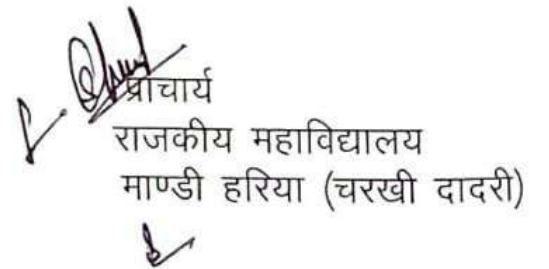 प्राचार्य
राजकीय महाविद्यालय
माण्डी हरिया (चरखी दादरी)